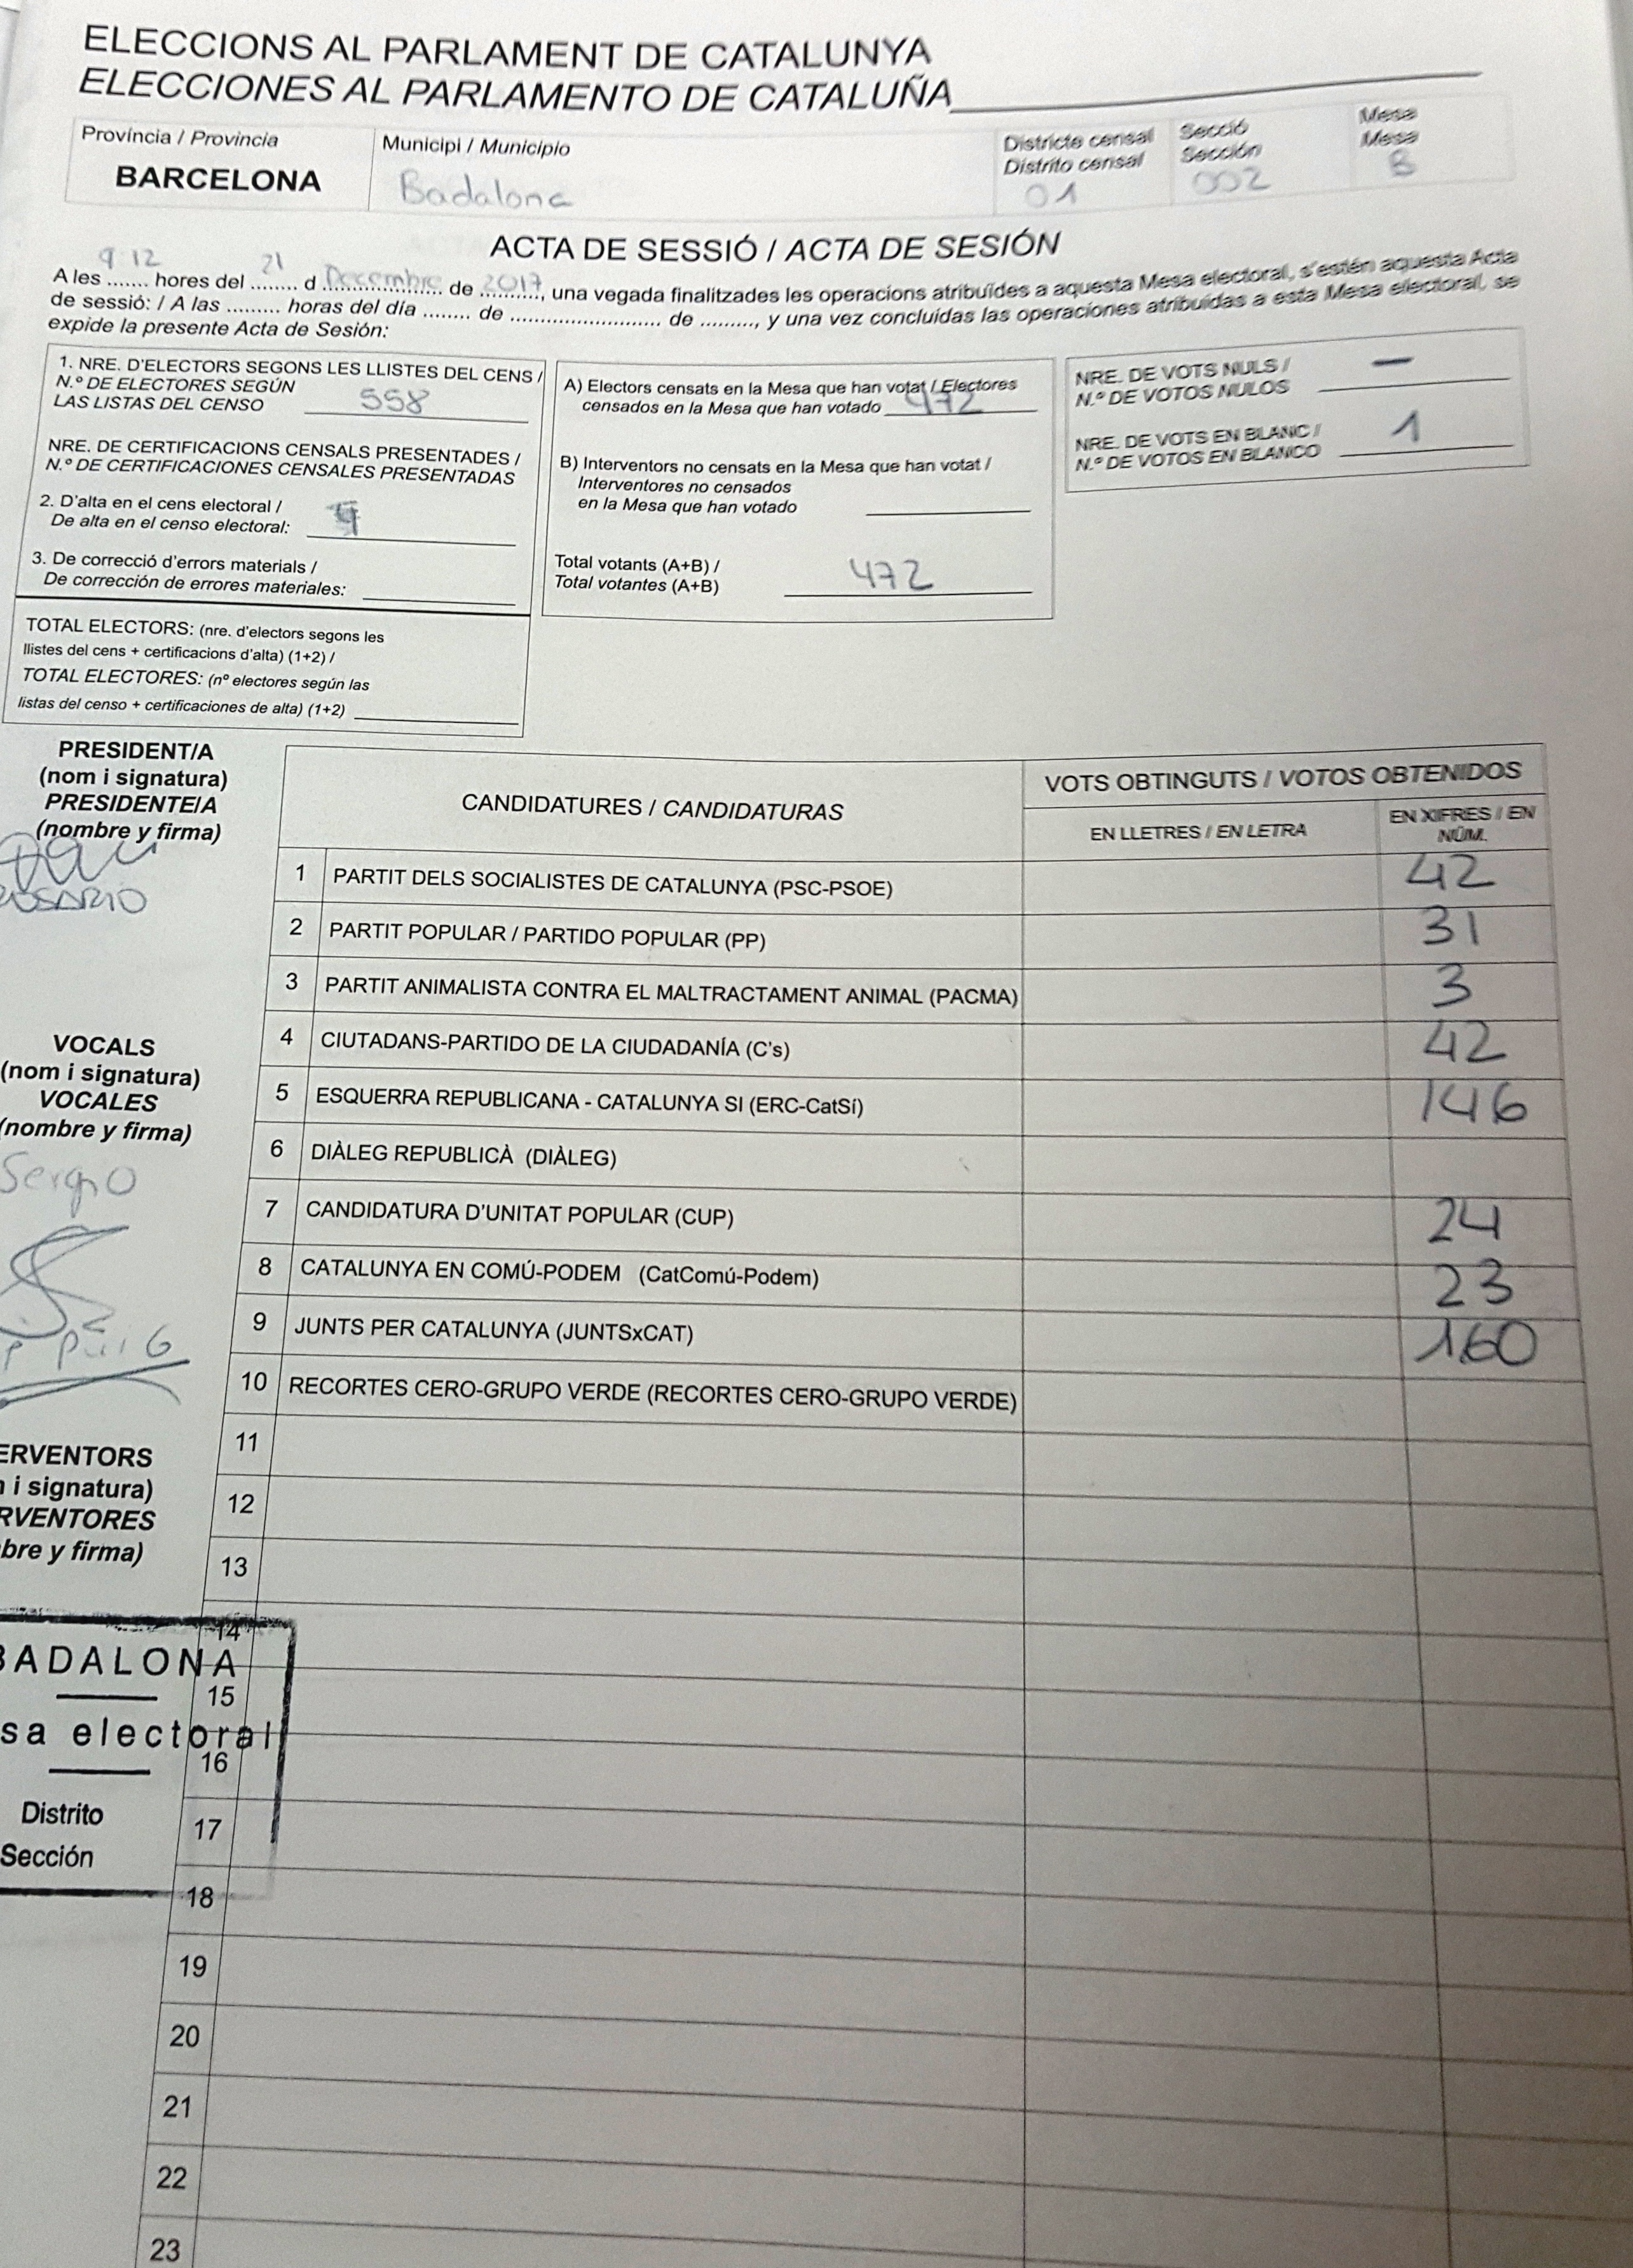 ELECCIONS AL PARLAMENT DE CATALUNYA
ELECCIONES AL PARLAMENTO DE CATALUÑA
Província / Provincia
BARCELONA
Municipi / Municipio
Badalona
Districte censal
Distrito censal
01
Secció
Sección
002
Mesa
Mesa
B
ACTA DE SESSIÓ / ACTA DE SESIÓN
A les 9:12 hores del 21 d Decembre de 2017, una vegada finalitzades les operacions atribuïdes a aquesta Mesa electoral, s'estén aquesta Acta
de sessió: / A las ......... horas del día ........ de .......................... de ........., y una vez concluídas las operaciones atribuidas a esta Mesa electoral, se
expide la presente Acta de Sesión:
1. NRE. D'ELECTORS SEGONS LES LLISTES DEL CENS /
N.º DE ELECTORES SEGÚN
LAS LISTAS DEL CENSO 558
NRE. DE CERTIFICACIONS CENSALS PRESENTADES /
N.º DE CERTIFICACIONES CENSALES PRESENTADAS
2. D'alta en el cens electoral /
De alta en el censo electoral:
3. De correcció d'errors materials /
De corrección de errores materiales:
TOTAL ELECTORS: (nre. d'electors segons les
llistes del cens + certificacions d'alta) (1+2) /
TOTAL ELECTORES: (nº electores según las
listas del censo + certificaciones de alta) (1+2)
A) Electors censats en la Mesa que han votat / Electores
censados en la Mesa que han votado 472
B) Interventors no censats en la Mesa que han votat /
Interventores no censados
en la Mesa que han votado
Total votants (A+B) /
Total votantes (A+B) 472
NRE. DE VOTS NULS /
N.º DE VOTOS NULOS —
NRE. DE VOTS EN BLANC /
N.º DE VOTOS EN BLANCO 1
PRESIDENT/A
(nom i signatura)
PRESIDENTE/A
(nombre y firma)
OSARIO
VOCALS
(nom i signatura)
VOCALES
(nombre y firma)
Sergio
Puig
ERVENTORS
i signatura)
RVENTORES
bre y firma)
BADALONA
sa electoral
Distrito
Sección
CANDIDATURES / CANDIDATURAS
VOTS OBTINGUTS / VOTOS OBTENIDOS
EN LLETRES / EN LETRA
EN XIFRES / EN
NÚM.
1 PARTIT DELS SOCIALISTES DE CATALUNYA (PSC-PSOE) 42
2 PARTIT POPULAR / PARTIDO POPULAR (PP) 31
3 PARTIT ANIMALISTA CONTRA EL MALTRACTAMENT ANIMAL (PACMA) 3
4 CIUTADANS-PARTIDO DE LA CIUDADANÍA (C's) 42
5 ESQUERRA REPUBLICANA - CATALUNYA SI (ERC-CatSí) 146
6 DIÀLEG REPUBLICÀ (DIÀLEG)
7 CANDIDATURA D'UNITAT POPULAR (CUP) 24
8 CATALUNYA EN COMÚ-PODEM (CatComú-Podem) 23
9 JUNTS PER CATALUNYA (JUNTSxCAT) 160
10 RECORTES CERO-GRUPO VERDE (RECORTES CERO-GRUPO VERDE)
11
12
13
14
15
16
17
18
19
20
21
22
23